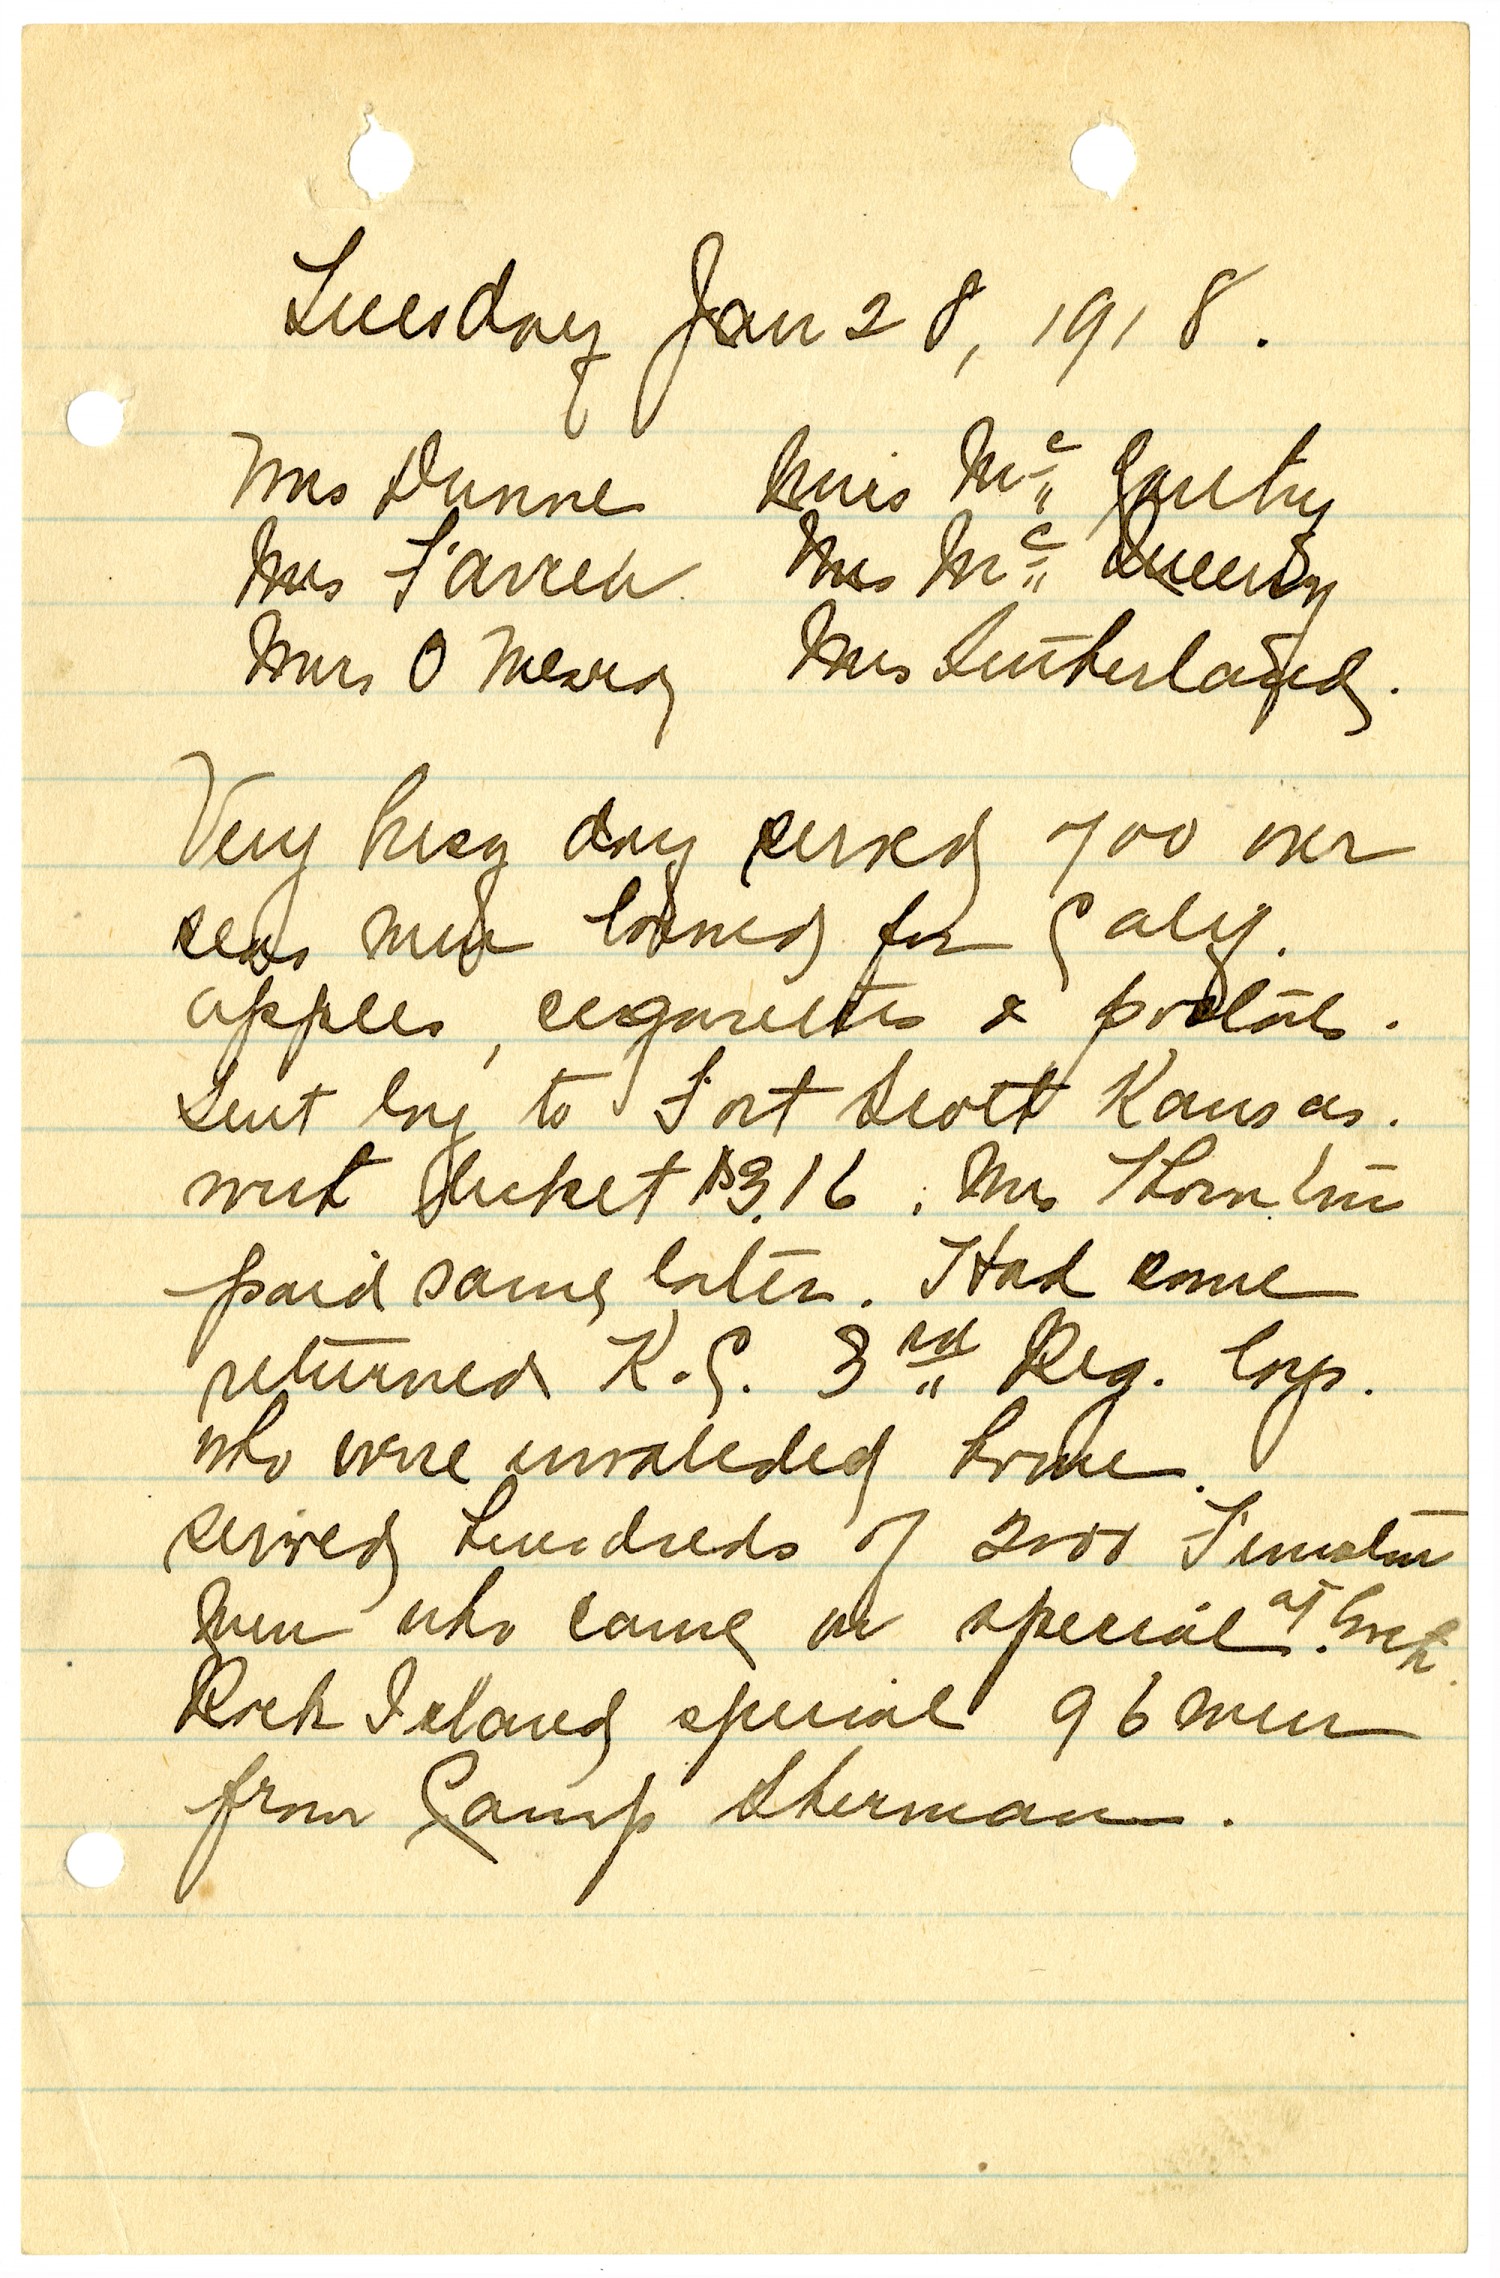 Tuesday Jan 28, 1918.
Mrs Dunne Miss Mc Garity
Mrs Farrell Mrs Mc
Mrs O Meara Mrs Sutherland.
Very busy day served 700 over
seas men bound for Calif.
apples, cigarettes & postals.
Sent boy to Fort Scott Kansas.
ticket $3.16. Mrs
paid same later. Had some
returned K.C. 3rd Reg. boys.
who were invalided home.
served hundreds of 2000 Funston
men who came in special at
Rock Island special 96 men
from Camp Sherman.